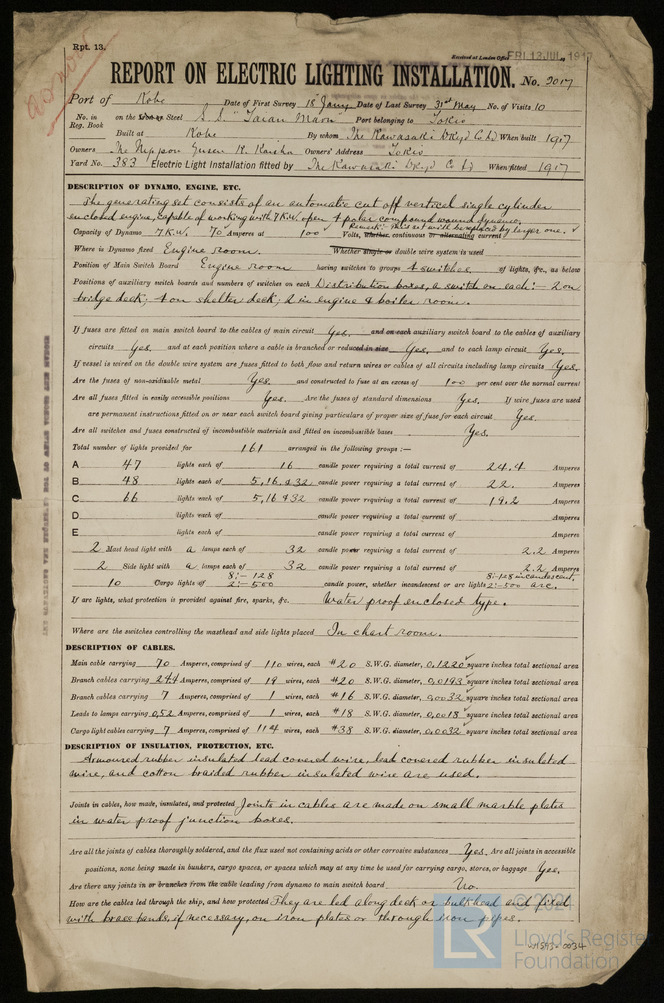 Rpt. 13.
Received at London Office FRI 13 JUL 1917
REPORT ON ELECTRIC LIGHTING INSTALLATION. No. 2017
Port of Kobe Date of First Survey 18 Jany Date of Last Survey 31st May No. of Visits 10
No. in Reg. Book on the Iron or Steel S.S. "Taian Maru" Port belonging to Tokio
Built at Kobe By whom The Kawasaki Dkyd Co Ld When built 1917
Owners The Nippon Yusen K. Kaisha Owners' Address Tokio
Yard No. 383 Electric Light Installation fitted by The Kawasaki Dkyd Co Ld When fitted 1917
DESCRIPTION OF DYNAMO, ENGINE, ETC.
The generating set consists of an automatic cut off vertical single cylinder
enclosed engine, capable of working with 7 K.W. open 4 poler compound wound dynamo.
Remark:- This set will be replaced by larger one.
Capacity of Dynamo 7 K.W. 70 Amperes at 100 Volts, whether continuous or alternating current
Where is Dynamo fixed Engine room. Whether single or double wire system is used
Position of Main Switch Board Engine room having switches to groups 4 switches of lights, &c., as below
Positions of auxiliary switch boards and numbers of switches on each Distribution boxes, a switch on each:- 2 on
bridge deck; 4 on shelter deck; 2 in engine & boiler room.
If fuses are fitted on main switch board to the cables of main circuit Yes. and on each auxiliary switch board to the cables of auxiliary
circuits Yes. and at each position where a cable is branched or reduced in size Yes. and to each lamp circuit Yes.
If vessel is wired on the double wire system are fuses fitted to both flow and return wires or cables of all circuits including lamp circuits Yes.
Are the fuses of non-oxidizable metal Yes. and constructed to fuse at an excess of 100 per cent over the normal current
Are all fuses fitted in easily accessible positions Yes. Are the fuses of standard dimensions Yes. If wire fuses are used
are permanent instructions fitted on or near each switch board giving particulars of proper size of fuse for each circuit Yes.
Are all switches and fuses constructed of incombustible materials and fitted on incombustible bases Yes.
Total number of lights provided for 161 arranged in the following groups :—
A 47 lights each of 16 candle power requiring a total current of 24.4 Amperes
B 48 lights each of 5, 16, & 32 candle power requiring a total current of 22. Amperes
C 66 lights each of 5, 16 & 32 candle power requiring a total current of 19.2 Amperes
D lights each of candle power requiring a total current of Amperes
E lights each of candle power requiring a total current of Amperes
2 Mast head light with a lamps each of 32 candle power requiring a total current of 2.2 Amperes
2 Side light with a lamps each of 32 candle power requiring a total current of 2.2 Amperes
10 Cargo lights of 8:- 128 2:- 500 candle power, whether incandescent or arc lights 8:-128 incandescent. 2:-500 arc.
If arc lights, what protection is provided against fire, sparks, &c. Water proof enclosed type.
Where are the switches controlling the masthead and side lights placed In chart room.
DESCRIPTION OF CABLES.
Main cable carrying 70 Amperes, comprised of 110 wires, each #20 S.W.G. diameter, 0.1220 square inches total sectional area
Branch cables carrying 24.4 Amperes, comprised of 19 wires, each #20 S.W.G. diameter, 0.0193 square inches total sectional area
Branch cables carrying 7 Amperes, comprised of 1 wires, each #16 S.W.G. diameter, 0.0032 square inches total sectional area
Leads to lamps carrying 0.52 Amperes, comprised of 1 wires, each #18 S.W.G. diameter, 0.0018 square inches total sectional area
Cargo light cables carrying 7 Amperes, comprised of 114 wires, each #38 S.W.G. diameter, 0.0032 square inches total sectional area
DESCRIPTION OF INSULATION, PROTECTION, ETC.
Armoured rubber insulated lead covered wire, lead covered rubber insulated
wire, and cotton braided rubber insulated wire are used.
Joints in cables, how made, insulated, and protected Joints in cables are made on small marble plates
in water proof junction boxes.
Are all the joints of cables thoroughly soldered, and the flux used not containing acids or other corrosive substances Yes. Are all joints in accessible
positions, none being made in bunkers, cargo spaces, or spaces which may at any time be used for carrying cargo, stores, or baggage Yes.
Are there any joints in or branches from the cable leading from dynamo to main switch board No.
How are the cables led through the ship, and how protected They are led along deck or bulkhead and fixed
with brass bands, if necessary, on iron plates or through iron pipes.
W1593-0034
© 2021
Lloyd's Register
Foundation